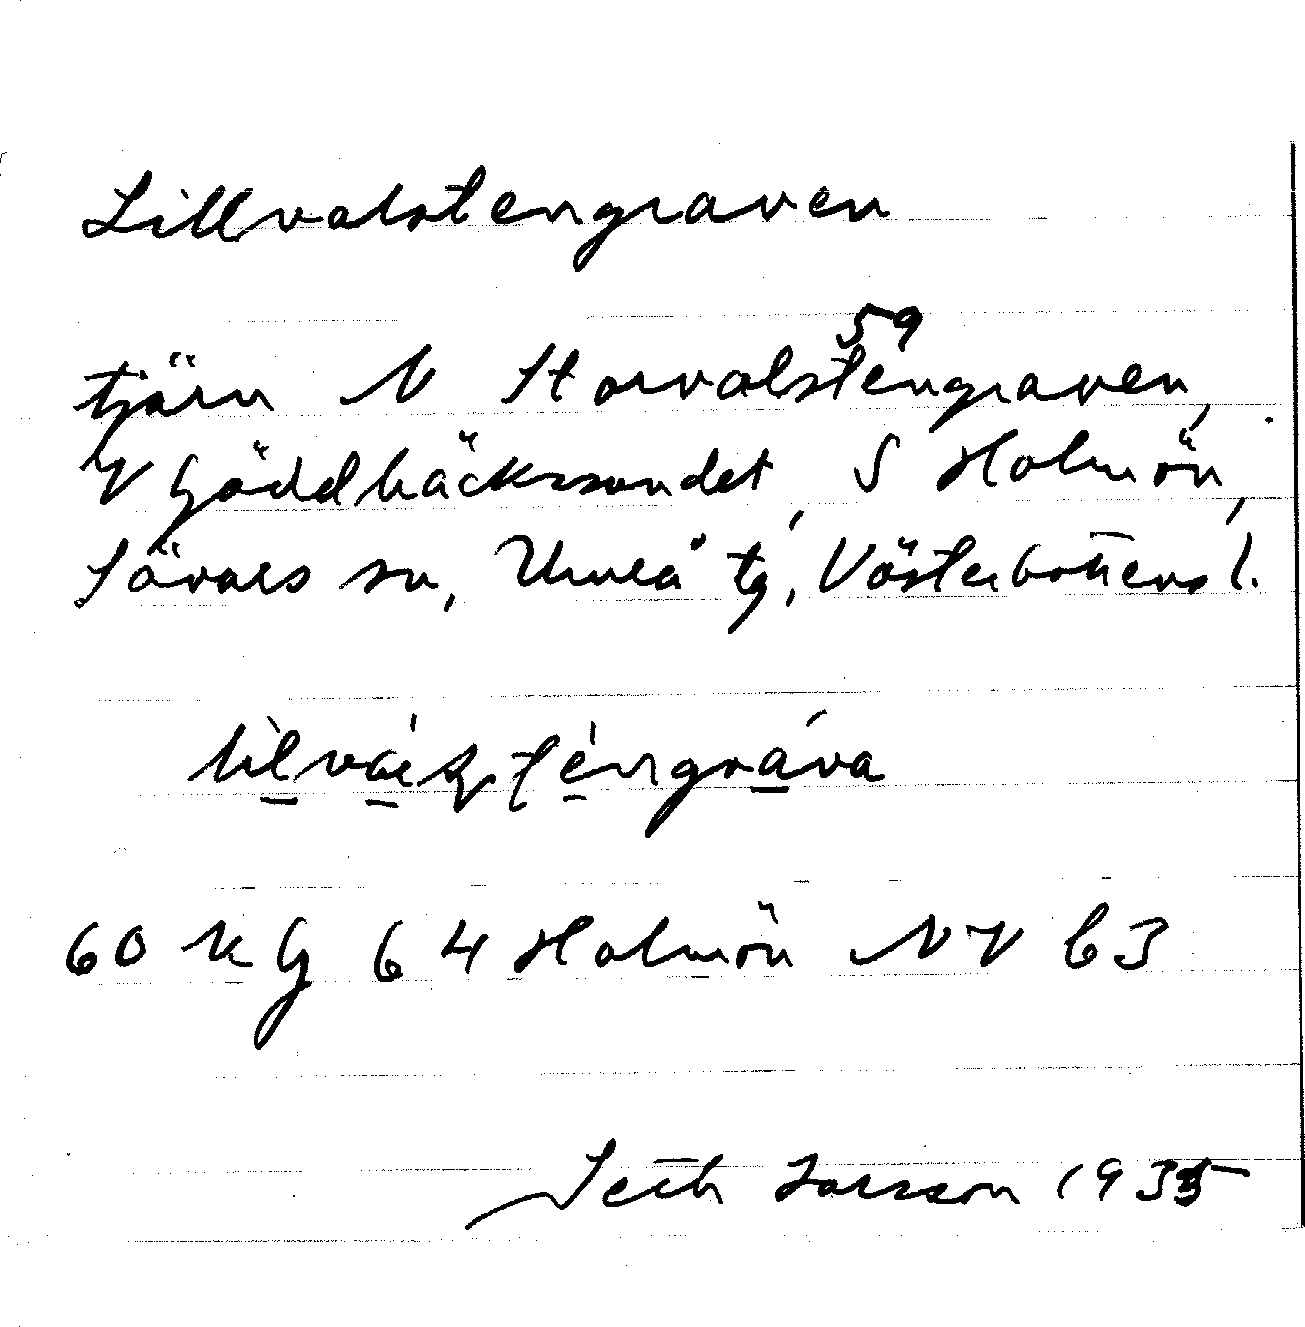 Lillvalstengraven
59
tjärn N Storvalstengraven,
V Gäddbäcksundet, S Holmön,
Sävars sn, Umeå tg, Västerbottens l.
60 kg 64 Holmön NV 63
Seth Larsson 1935